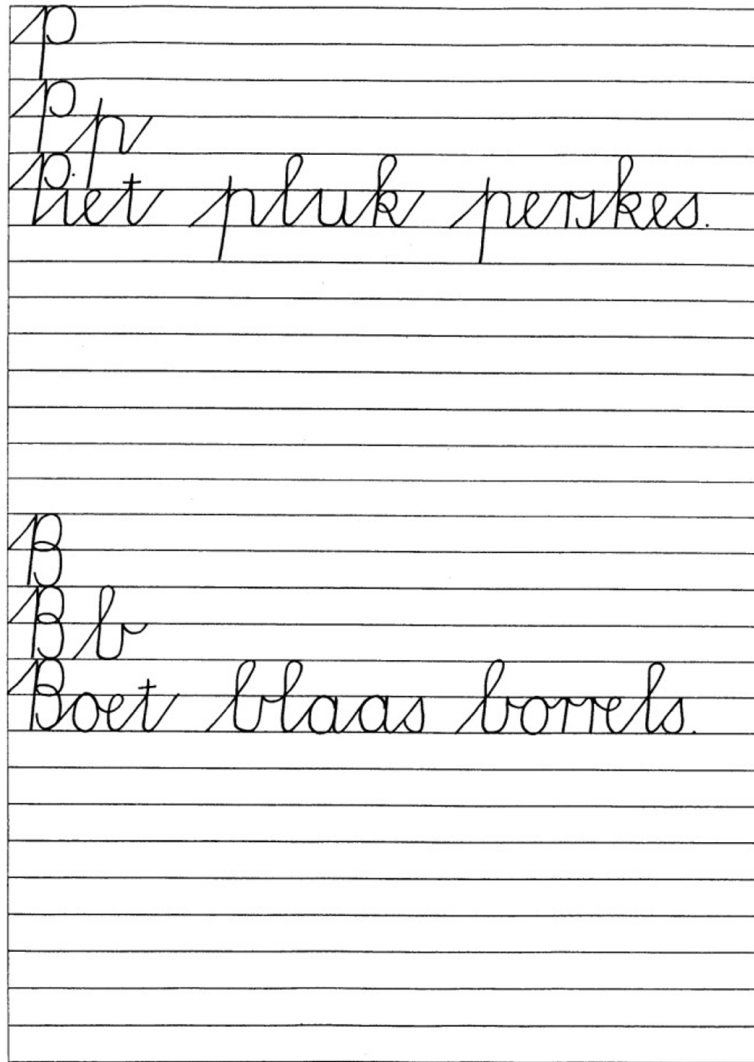 P
P p
Piet pluk perskes.
B
B b
Boet blaas borrels.